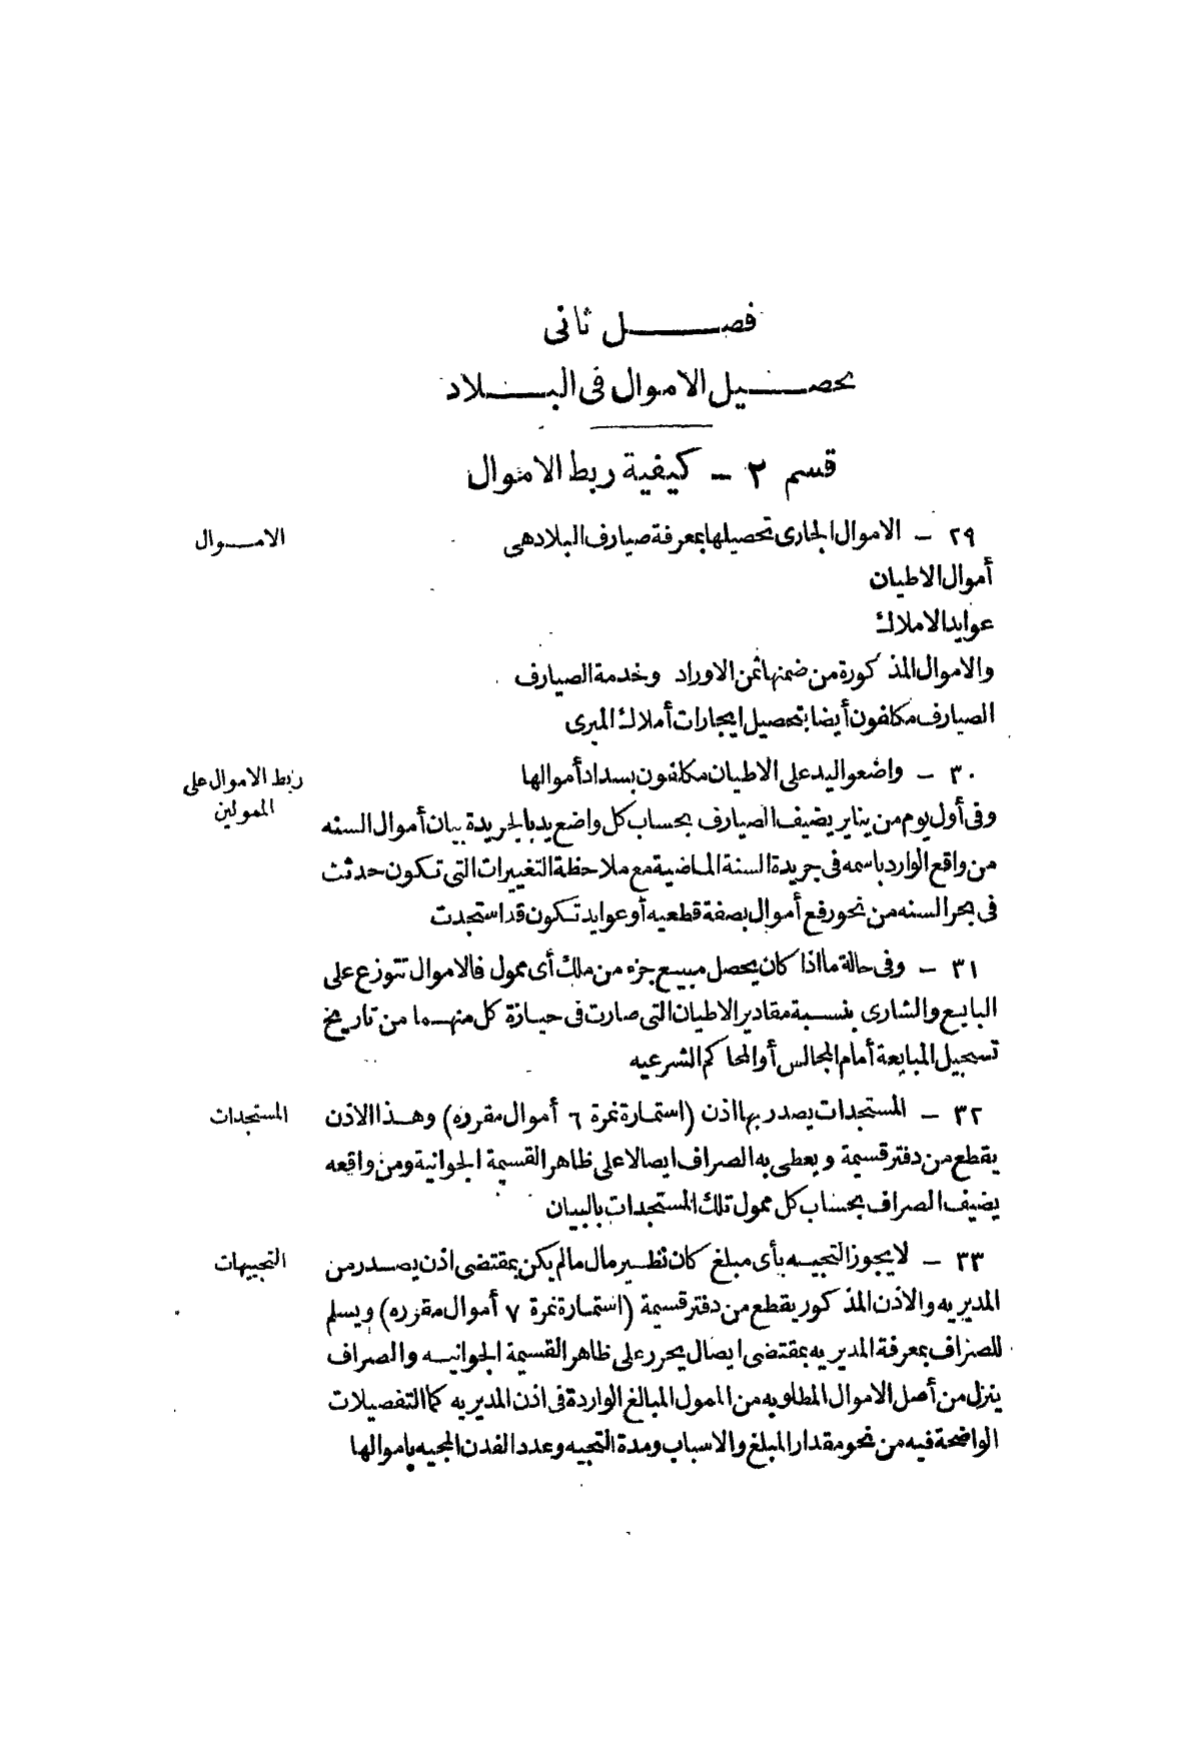 فصل ثانى
تحصيل الاموال فى البلاد
قسم ٢ – كيفية ربط الاموال
٢٩ – الاموال الجارى تحصيلها بمعرفة صيارف البلاد هى
الاموال
أموال الاطيان
عوايد الاملاك
والاموال المذكورة من ضمنها ثمن الاوراد وخدمة الصيارف
الصيارف مكلفون أيضا بتحصيل ايجارات أملاك الميرى
٣٠ – واضعو اليد على الاطيان مكلفون بسداد أموالها
ربط الاموال على
الممولين
وفى أول يوم من يناير يضيف الصيارف بحساب كل واضع يد بالجريدة بيان أموال السنه
من واقع الوارد باسمه فى جريدة السنة الماضية مع ملاحظة التغييرات التى تكون حدثت
فى بحر السنه من نحو رفع أموال بصفة قطعيه أو عوايد تكون قد استجدت
٣١ – وفى حالة ما اذا كان يحصل مبيع جزء من ملك أى ممول فالاموال تتوزع على
البايع والشارى بنسبة مقادير الاطيان التى صارت فى حيازة كل منهما من تاريخ
تسجيل المبايعة أمام المجالس أو المحاكم الشرعيه
٣٢ – المستجدات يصدر بها اذن (استمارة نمرة ٦ أموال مقرره) وهذا الاذن
المستجدات
يقطع من دفتر قسيمة ويعطى به الصراف ايصالا على ظاهر القسيمة الجوانية ومن واقعه
يضيف الصراف بحساب كل ممول تلك المستجدات بالبيان
٣٣ – لا يجوز التجييه بأى مبلغ كان نظير مال مالم يكن بمقتضى اذن يصدر من
التجييهات
المديريه والاذن المذكور يقطع من دفتر قسيمة (استمارة نمرة ٧ أموال مقرره) ويسلم
للصراف بمعرفة المديريه بمقتضى ايصال يحرر على ظاهر القسيمة الجوانيه والصراف
ينزل من أصل الاموال المطلوبه من الممول المبالغ الواردة فى اذن المديريه كما التفصيلات
الواضحة فيه من نحو مقدار المبلغ والاسباب ومدة التجييه وعدد الفدن المجيه باموالها